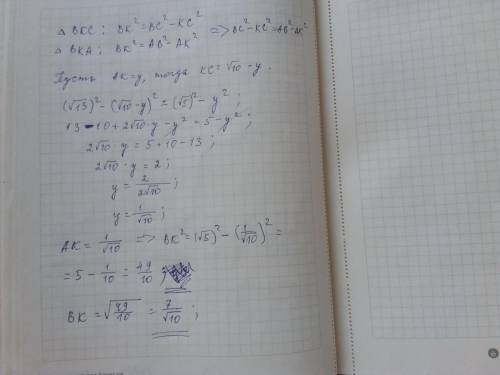 △ BKC: BK² = BC² - KC² => BC² - KC² = AB² - AK²
△ BKA: BK² = AB² - AK²
Пусть AK = y, тогда KC = √10 - y.
(√13)² - (√10 - y)² = (√5)² - y²;
13 - 10 + 2√10·y - y² = 5 - y²;
2√10·y = 5 + 10 - 13;
2√10·y = 2;
y = 2/(2√10);
y = 1/√10;
AK = 1/√10 => BK² = (√5)² - (1/√10)² =
= 5 - 1/10 = 49/10;
BK = √(49/10) = 7/√10;